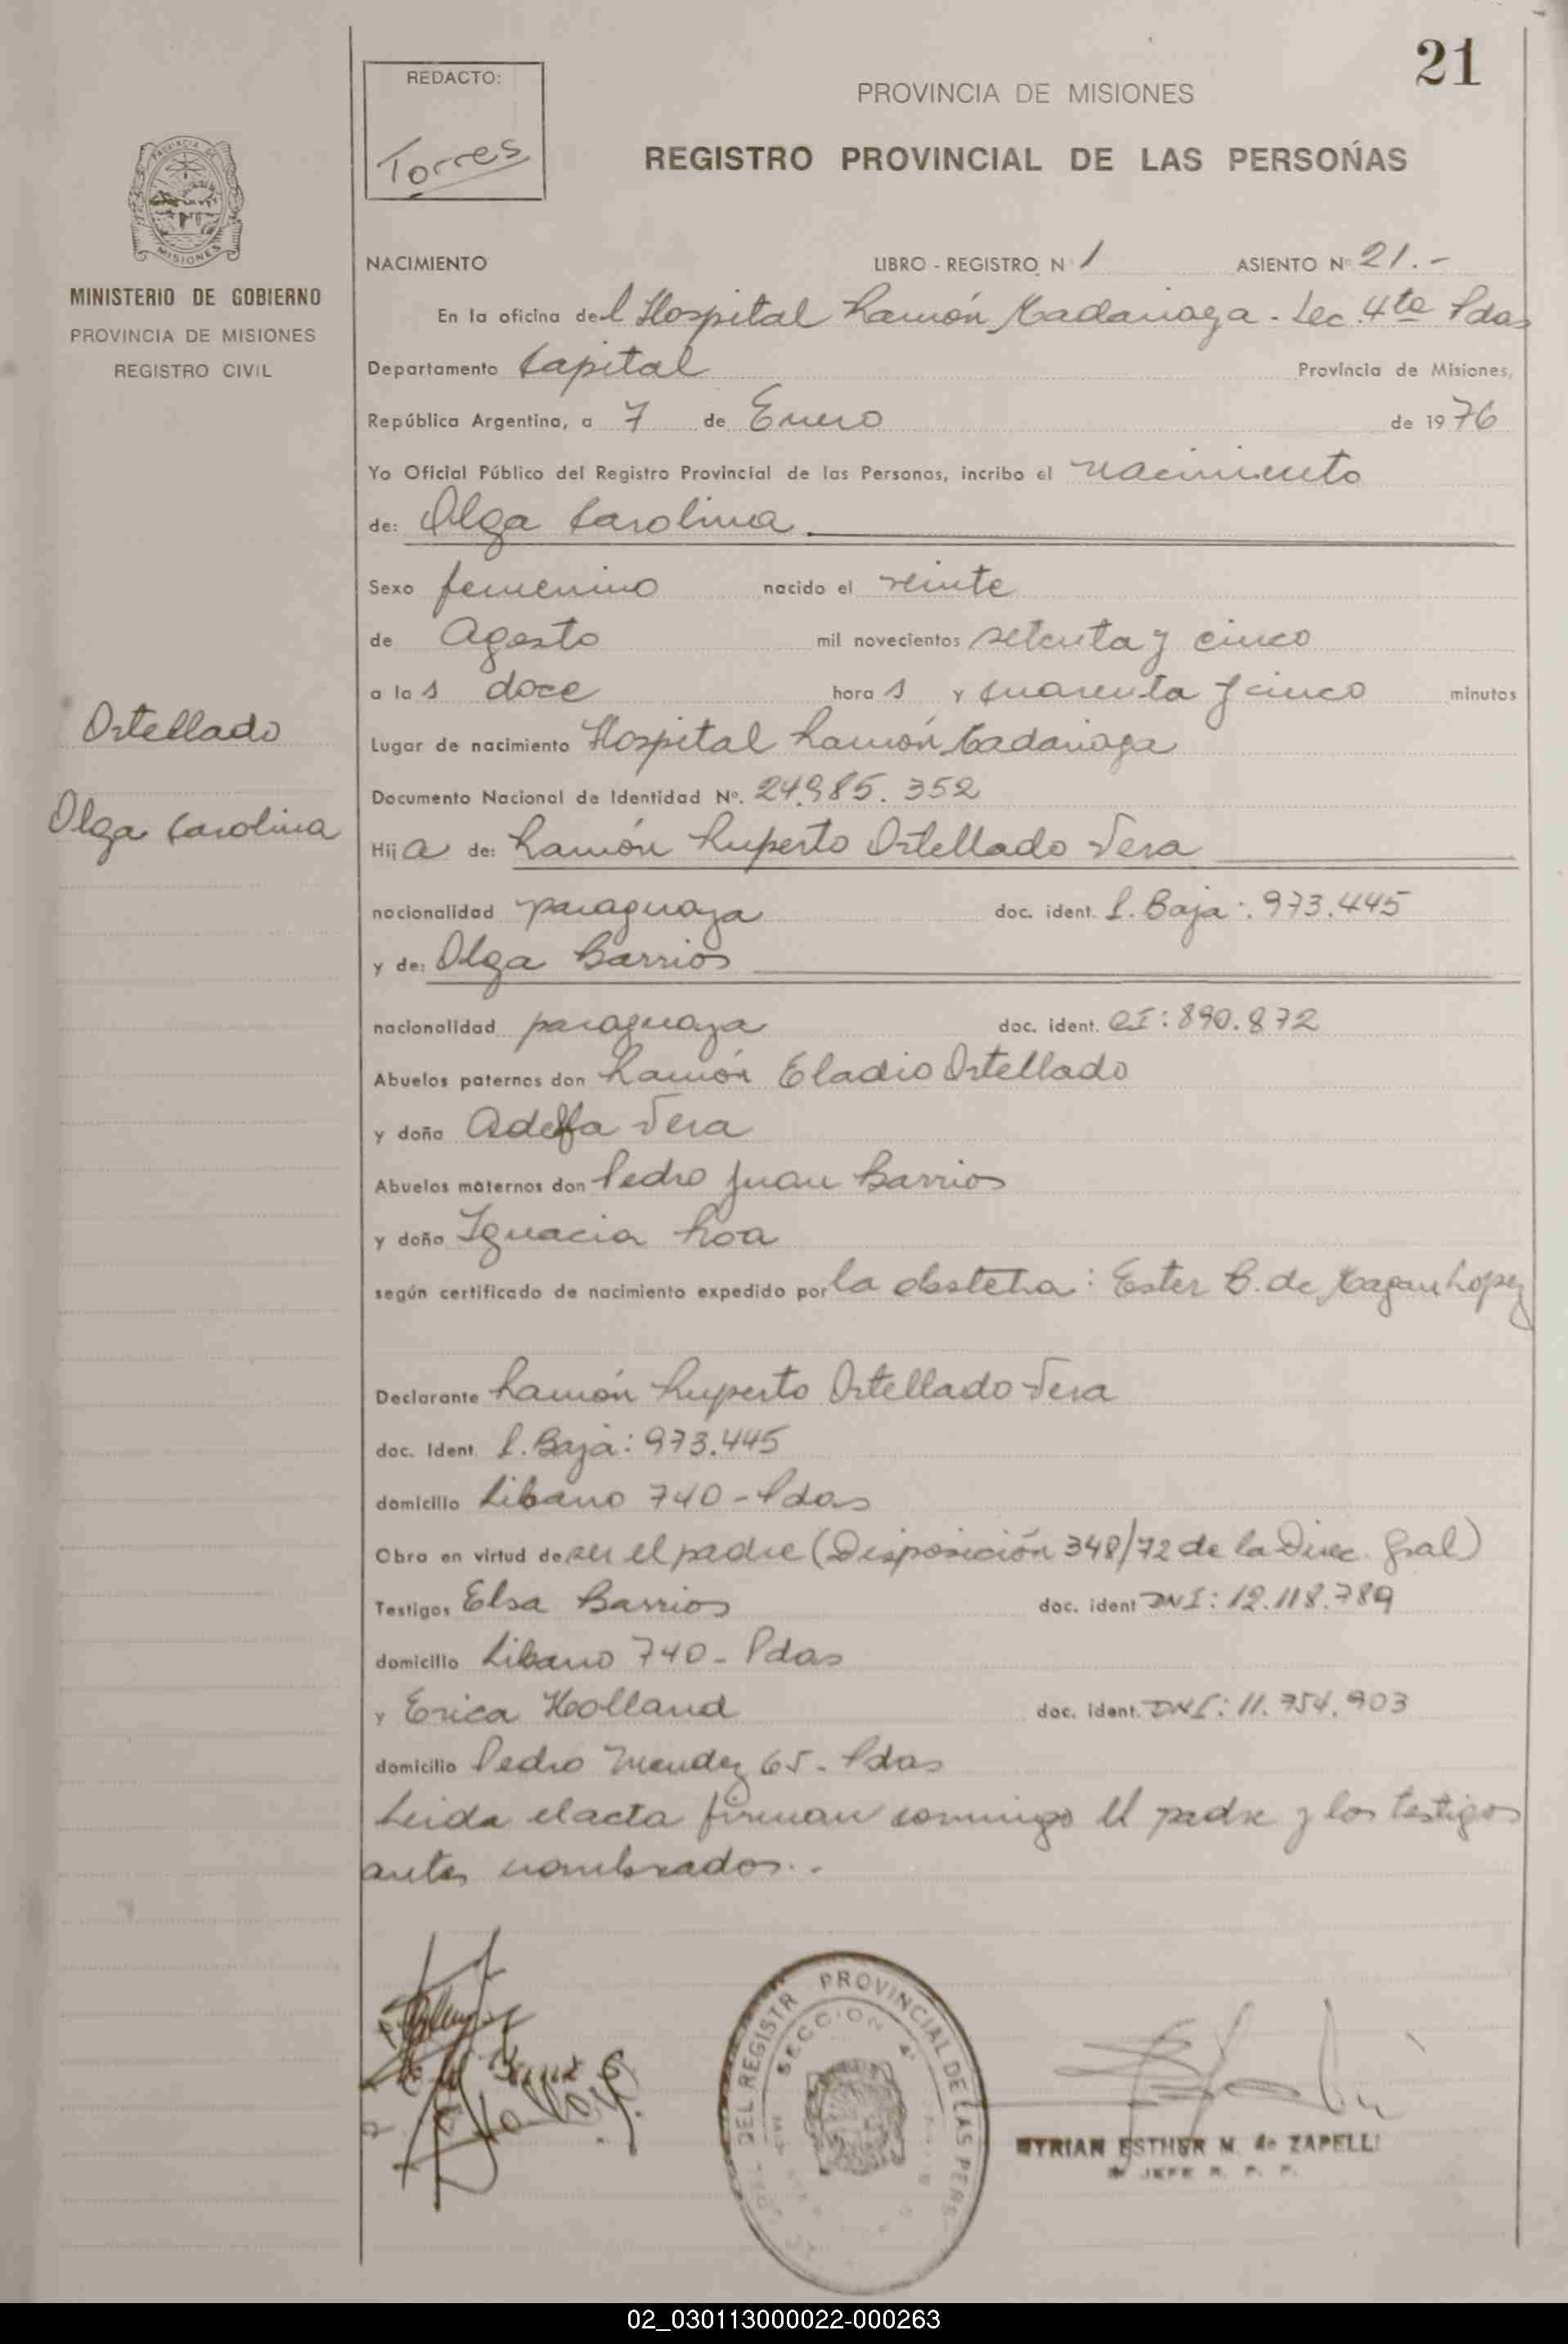 21
REDACTO:
Torres
PROVINCIA DE MISIONES
REGISTRO PROVINCIAL DE LAS PERSONAS
MINISTERIO DE GOBIERNO
PROVINCIA DE MISIONES
REGISTRO CIVIL
NACIMIENTO LIBRO - REGISTRO N 1 ASIENTO Nº 21.-
En la oficina del Hospital Ramón Madariaga - Sec. 4ta Pdas
Departamento Capital Provincia de Misiones,
República Argentina, a 7 de Enero de 1976
Yo Oficial Público del Registro Provincial de las Personas, incribo el nacimiento
de: Olga Carolina
Sexo femenino nacido el veinte
de Agosto mil novecientos setenta y cinco
a las doce horas y cuarenta y cinco minutos
Ortellado
Olga Carolina
Lugar de nacimiento Hospital Ramón Madariaga
Documento Nacional de Identidad Nº. 24.985.352
Hija de: Ramón Ruperto Ortellado Vera
nacionalidad paraguaya doc. ident. L. Baja: 973.445
y de: Olga Barrios
nacionalidad paraguaya doc. ident. CI: 890.872
Abuelos paternos don Ramón Eladio Ortellado
y doña Adelfa Vera
Abuelos maternos don Pedro Juan Barrios
y doña Ignacia Roa
según certificado de nacimiento expedido por la obstetra: Ester B. de Lopez
Declarante Ramón Ruperto Ortellado Vera
doc. Ident. L. Baja: 973.445
domicilio Libano 740 - Pdas
Obra en virtud de ser el padre (Disposición 348/72 de la Direc. Gral)
Testigos Elsa Barrios doc. ident DNI: 12.118.789
domicilio Libano 740 - Pdas
y Erica Holland doc. ident. DNI: 11.754.903
domicilio Pedro Mendez 65 - Pdas
Leida el acta firman conmigo el padre y los testigos
antes nombrados.-
DEL REGISTR PROVINCIAL DE LAS PERS
SECCION 4ª
MYRIAN ESTHER M. de ZAPELLI
JEFE R. P. P.
02_030113000022-000263